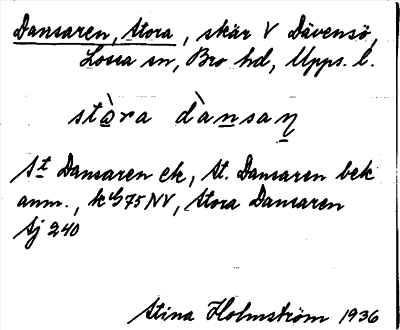 Dansaren, Stora, skär V Dävensö,
Lossa sn, Bro hd, Upps. l.
stòra dànsaṇ
St Dansaren ek, St. Dansaren bek
anm., k 75 NV, Stora Dansaren
Sj 240
Stina Holmström 1936